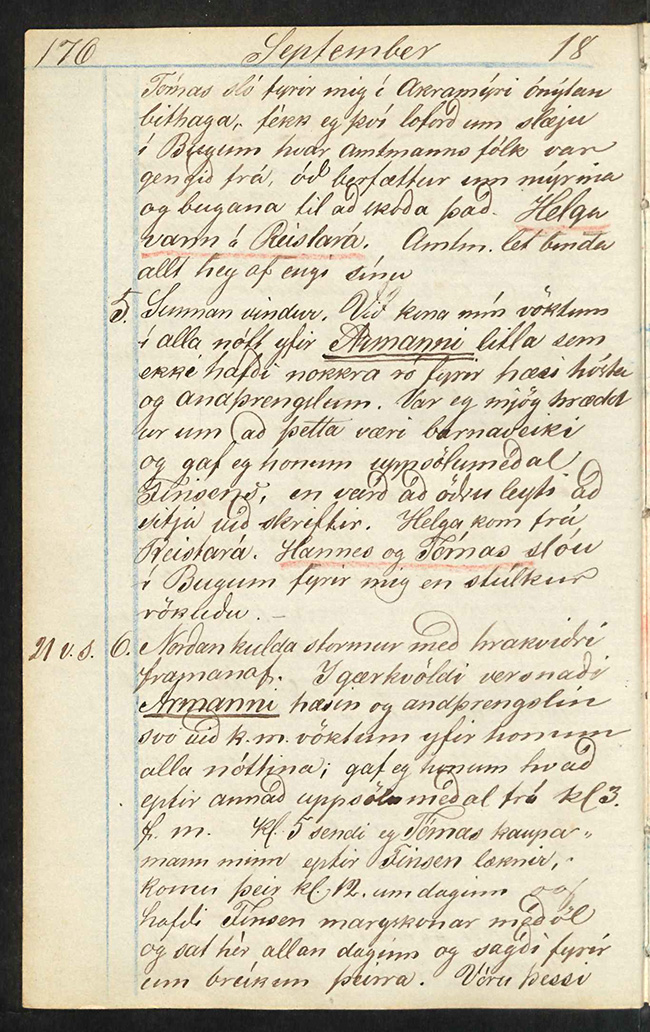 170 September 18
Tómas sló fyrir mig í Akramýri ónýtan
bithaga, fékk eg því loford um slæju
í Bugum hvar amtmanns fólk var
gengid frá, óð berfættur um mýrina
og bugana til ad skoda það. Helga
vann á Reistará. Amtm. let binda
allt hey af engi sínu
5. Sunnan vindur. Við kona mín vöktum
í alla nótt yfir Armanni litla sem
ekki hafði nokkra ró fyrir hæsi hósta
og andþrengslum. Var eg mjög hrædd
ur um að þetta væri barnaveiki
og gaf eg honum uppsölumeðal
Finsens, en varð að öðru leyti að
sitja við skriftir. Helga kom frá
Reistará. Hannes og Tómas slóu
í Bugum fyrir mig en stulkur
rökudu.
21 v. s. 6. Nordan kulda stormur með hrakviðri
framanaf. I gærkvöldi versnaði
Armanni hæsin og andþrengslin
svo við k. m. vöktum yfir honum
alla nóttina; gaf eg honum hvað
eptir annað uppsölumeðal frá kl 3.
f. m. Kl. 5 sendi eg Tómas kaupa-
mann minn eptir Finsen læknir,
komu þeir kl 12. um daginn og
hafdi Finsen margskonar meðöl
og sat hér allan daginn og sagði fyrir
um breikun þeirra. Vóru þessi